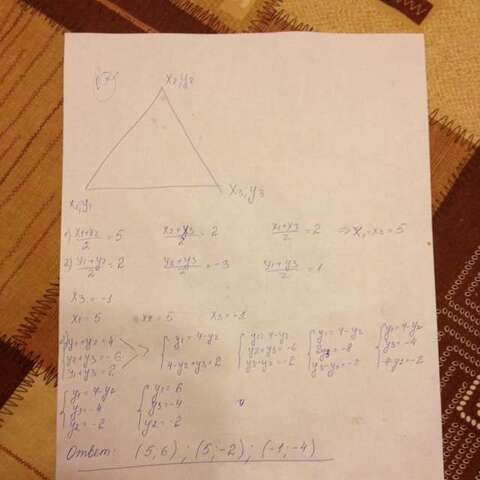 x2, y2
x1, y1
x3, y3
1) (x1+x2)/2 = 5 (x2+x3)/2 = 2 (x1+x3)/2 = 2 ⇒ x1=x2=5
2) (y1+y2)/2 = 2 (y2+y3)/2 = -3 (y1+y3)/2 = 1
x3 = -1
x1 = 5 x2 = 5 x3 = -1
y1+y2=4 { y1=4-y2 { y1=4-y2 { y1=4-y2 { y1=4-y2
y2+y3=-6 y2+y3=-6 y3=-4
y1+y3=2 4-y2+y3=2 y3-y2=-2 y3-y2=-2 y2=-2
{ y1=4-y2 { y1=6
y3=-4 y3=-4
y2=-2 y2=-2
Ответ: (5; 6); (5; -2); (-1; -4)